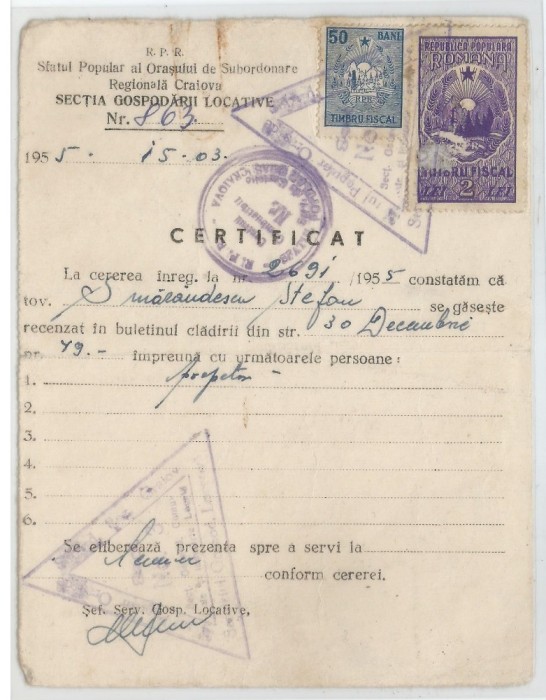 R. P. R.
Sfatul Popular al Orașului de Subordonare
Regională Craiova
SECȚIA GOSPODĂRII LOCATIVE
Nr. 863
50 BANI
RPR
TIMBRU FISCAL
REPUBLICA POPULARA
ROMANA
FISCAL
LEI 2 LEI
1955. 15-03.
CRAIOVA
CERTIFICAT
La cererea înreg. la nr. 2691 /1955 constatăm că
tov. Smărandescu Ștefan se găsește
recenzat în buletinul clădirii din str. 30 Decembrie
nr. 79.- împreună cu următoarele persoane :
1.
2.
3.
4.
5.
6.
Se eliberează prezenta spre a servi la
conform cererei.
Șef. Serv. Gosp. Locative,